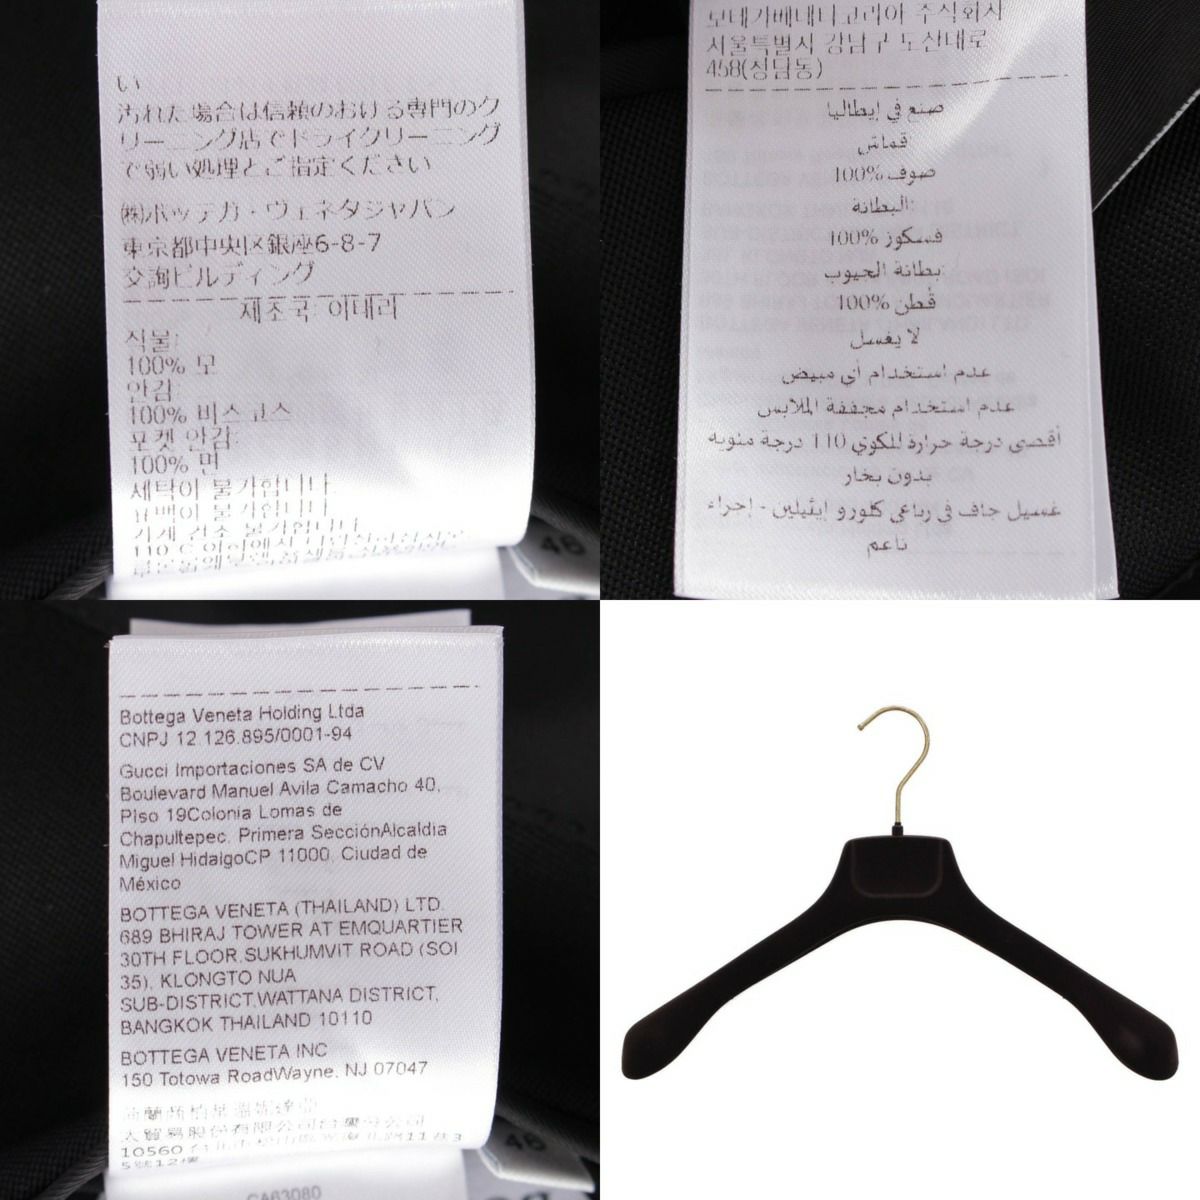 い
汚れた場合は信頼のおける専門のク
リーニング店でドライクリーニング
で弱い処理とご指定ください
㈱ボッテガ・ヴェネタジャパン
東京都中央区銀座6-8-7
交詢ビルディング
제조국: 이태리
직물:
100% 모
안감:
100% 비스코스
포켓 안감:
100% 면
세탁이 불가합니다.
표백이 불가합니다.
기계 건조 불가합니다.
46
보테가베네타코리아 주식회사
서울특별시 강남구 도산대로
458(청담동)
صنع في إيطاليا
قماش
صوف %100
البطانة:
فسكوز %100
بطانة الجيوب
قطن %100
لا يغسل
عدم استخدام أي مبيض
عدم استخدام مجففة الملابس
أقصى درجة حرارة للكوي 110 درجة مئوية
بدون بخار
غسيل جاف في رباعي كلورو إيثيلين - إجراء
ناعم
Bottega Veneta Holding Ltda
CNPJ 12.126.895/0001-94
Gucci Importaciones SA de CV
Boulevard Manuel Avila Camacho 40,
Piso 19Colonia Lomas de
Chapultepec, Primera SecciónAlcaldia
Miguel HidalgoCP 11000, Ciudad de
México
BOTTEGA VENETA (THAILAND) LTD.
689 BHIRAJ TOWER AT EMQUARTIER
30TH FLOOR,SUKHUMVIT ROAD (SOI
35), KLONGTO NUA
SUB-DISTRICT,WATTANA DISTRICT,
BANGKOK THAILAND 10110
BOTTEGA VENETA INC
150 Totowa RoadWayne, NJ 07047
大貿易股份有限公司台灣分公司
10560
46
CA63080